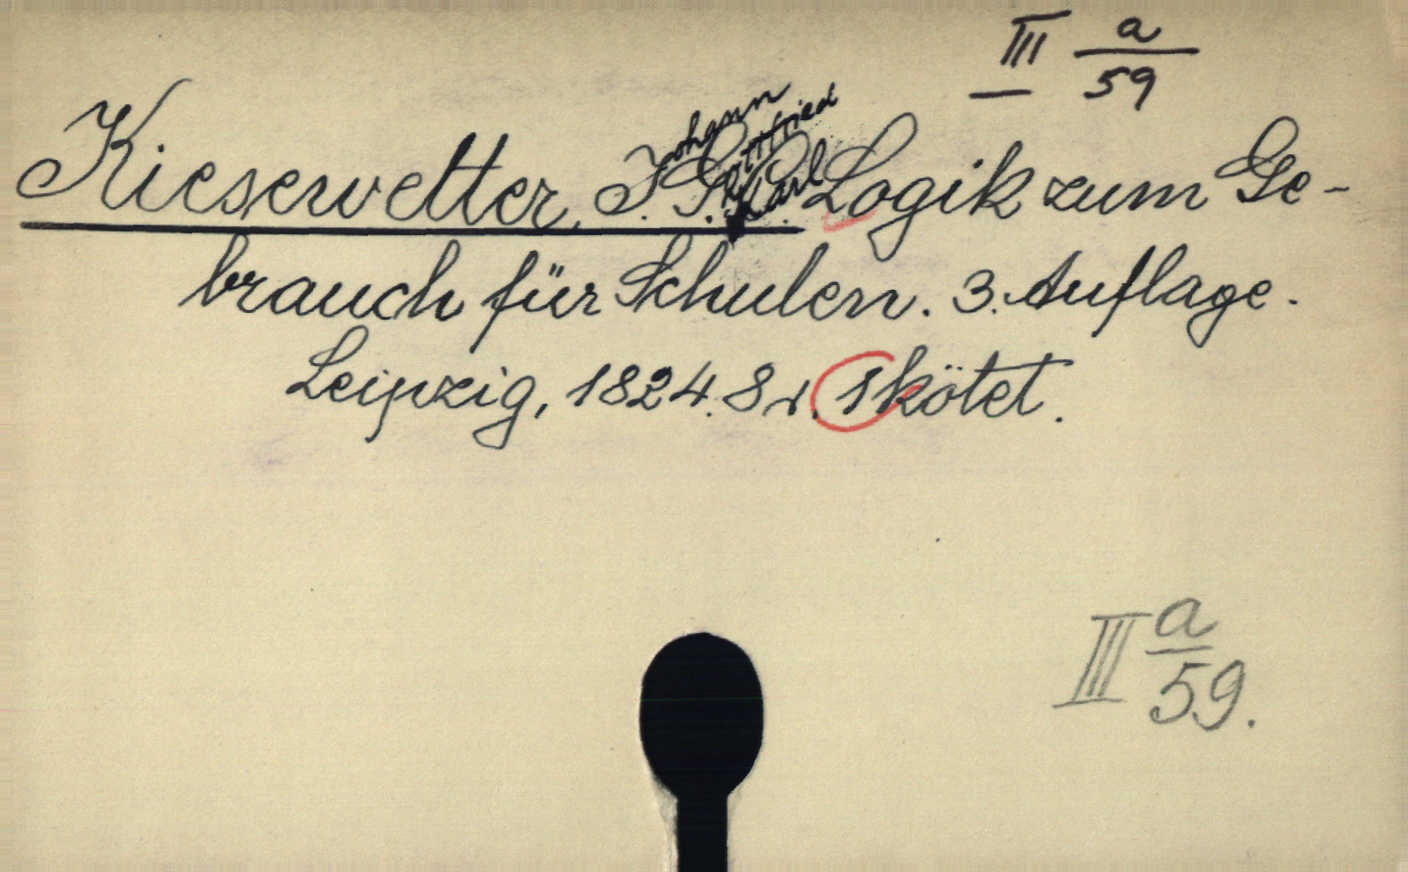 III a/59
Kiesewetter, Johann Gottfried Karl Logik zum Ge-
brauch für Schulen. 3. Auflage.
Leipzig, 1824. 8r. 1 kötet.
III a/59.